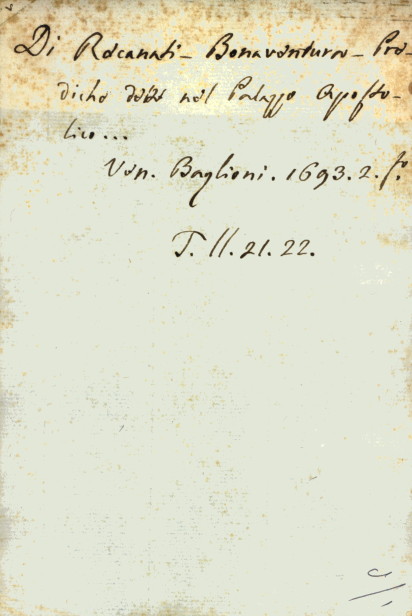 Di Recanati - Bonaventura - Pre-
diche dette nel Palazzo Aposto-
lico...
Ven. Baglioni. 1693. 2. fo.
T. II. 21. 22.